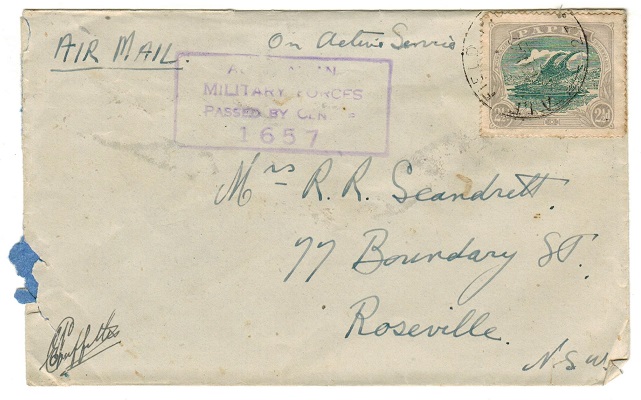 AIR MAIL
On Active Service
MILITARY FORCES
PASSED BY
1657
PAPUA
FIELD
2½ 2½
Mrs R. R. Scandrett
77 Boundary St.
Roseville.
N.S.W.